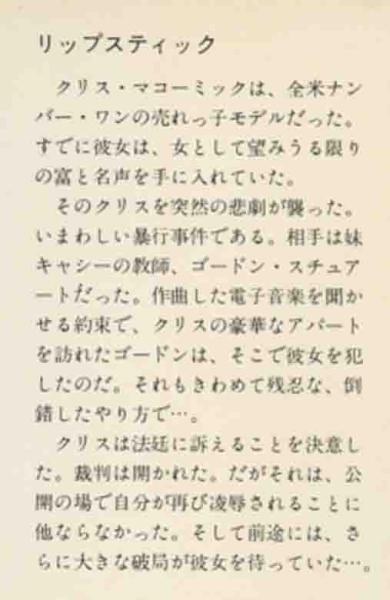 リップスティック
クリス・マコーミックは、全米ナン
バー・ワンの売れっ子モデルだった。
すでに彼女は、女として望みうる限り
の富と名声を手に入れていた。
そのクリスを突然の悲劇が襲った。
いまわしい暴行事件である。相手は妹
キャシーの教師、ゴードン・スチュア
ートだった。作曲した電子音楽を聞か
せる約束で、クリスの豪華なアパート
を訪れたゴードンは、そこで彼女を犯
したのだ。それもきわめて残忍な、倒
錯したやり方で…。
クリスは法廷に訴えることを決意し
た。裁判は開かれた。だがそれは、公
開の場で自分が再び凌辱されることに
他ならなかった。そして前途には、さ
らに大きな破局が彼女を待っていた…。